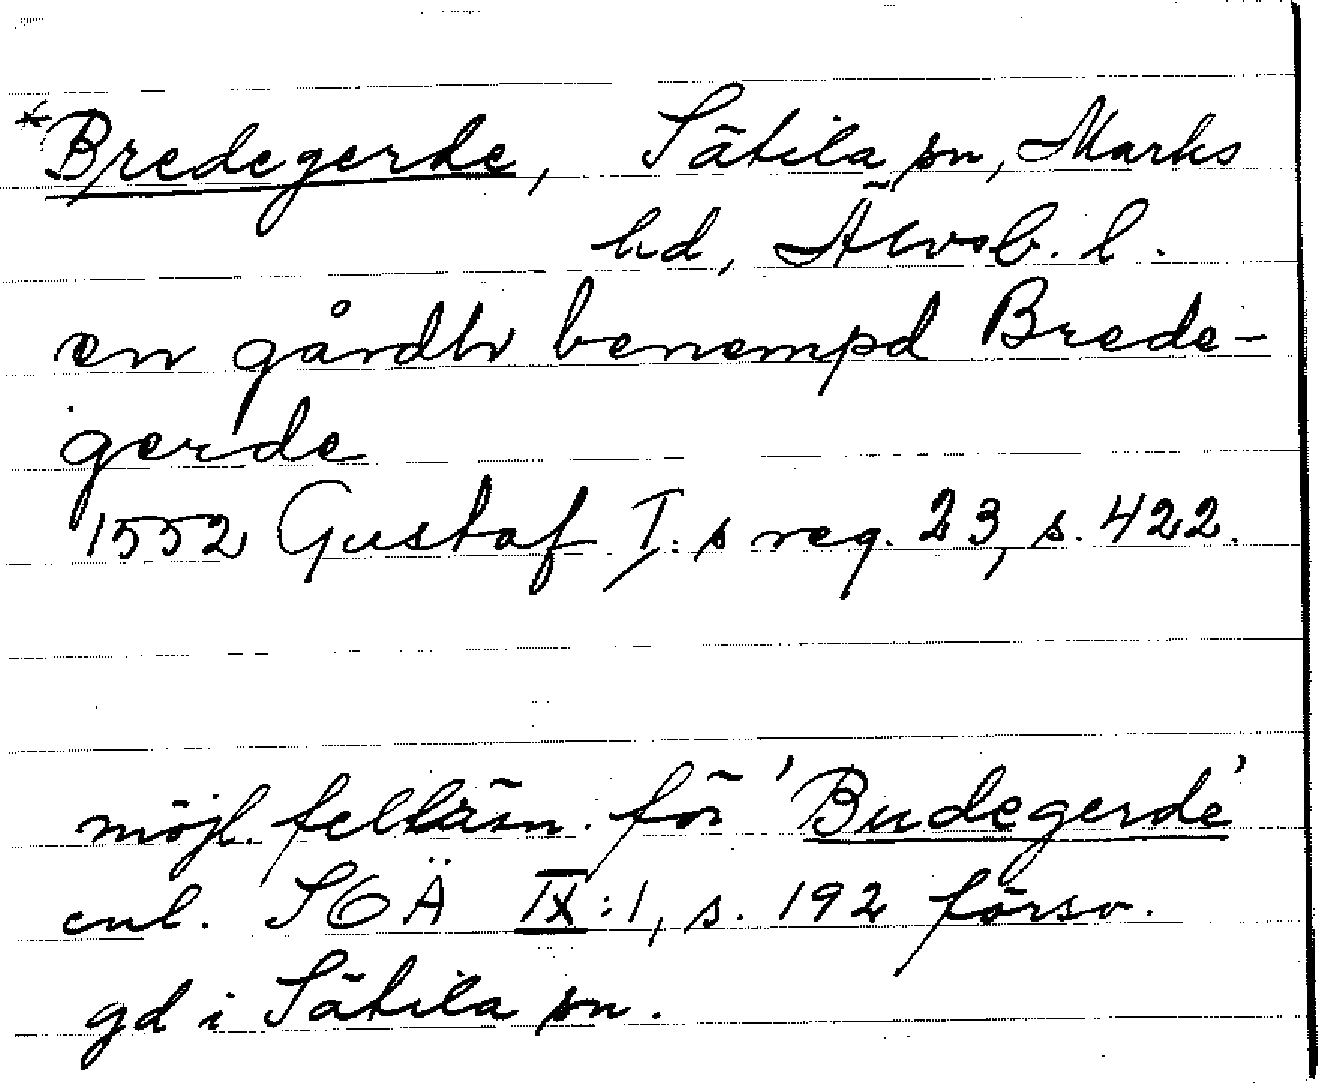 *Bredegerde, Sätila sn, Marks
hd, Älvsb. l.
en gårdh benempd Brede-
gerde
1552 Gustaf I:s reg. 23, s. 422.
möjl. felläsn. för 'Budegerde'
enl. SOÄ IX:1, s. 192 försv.
gd i Sätila sn.